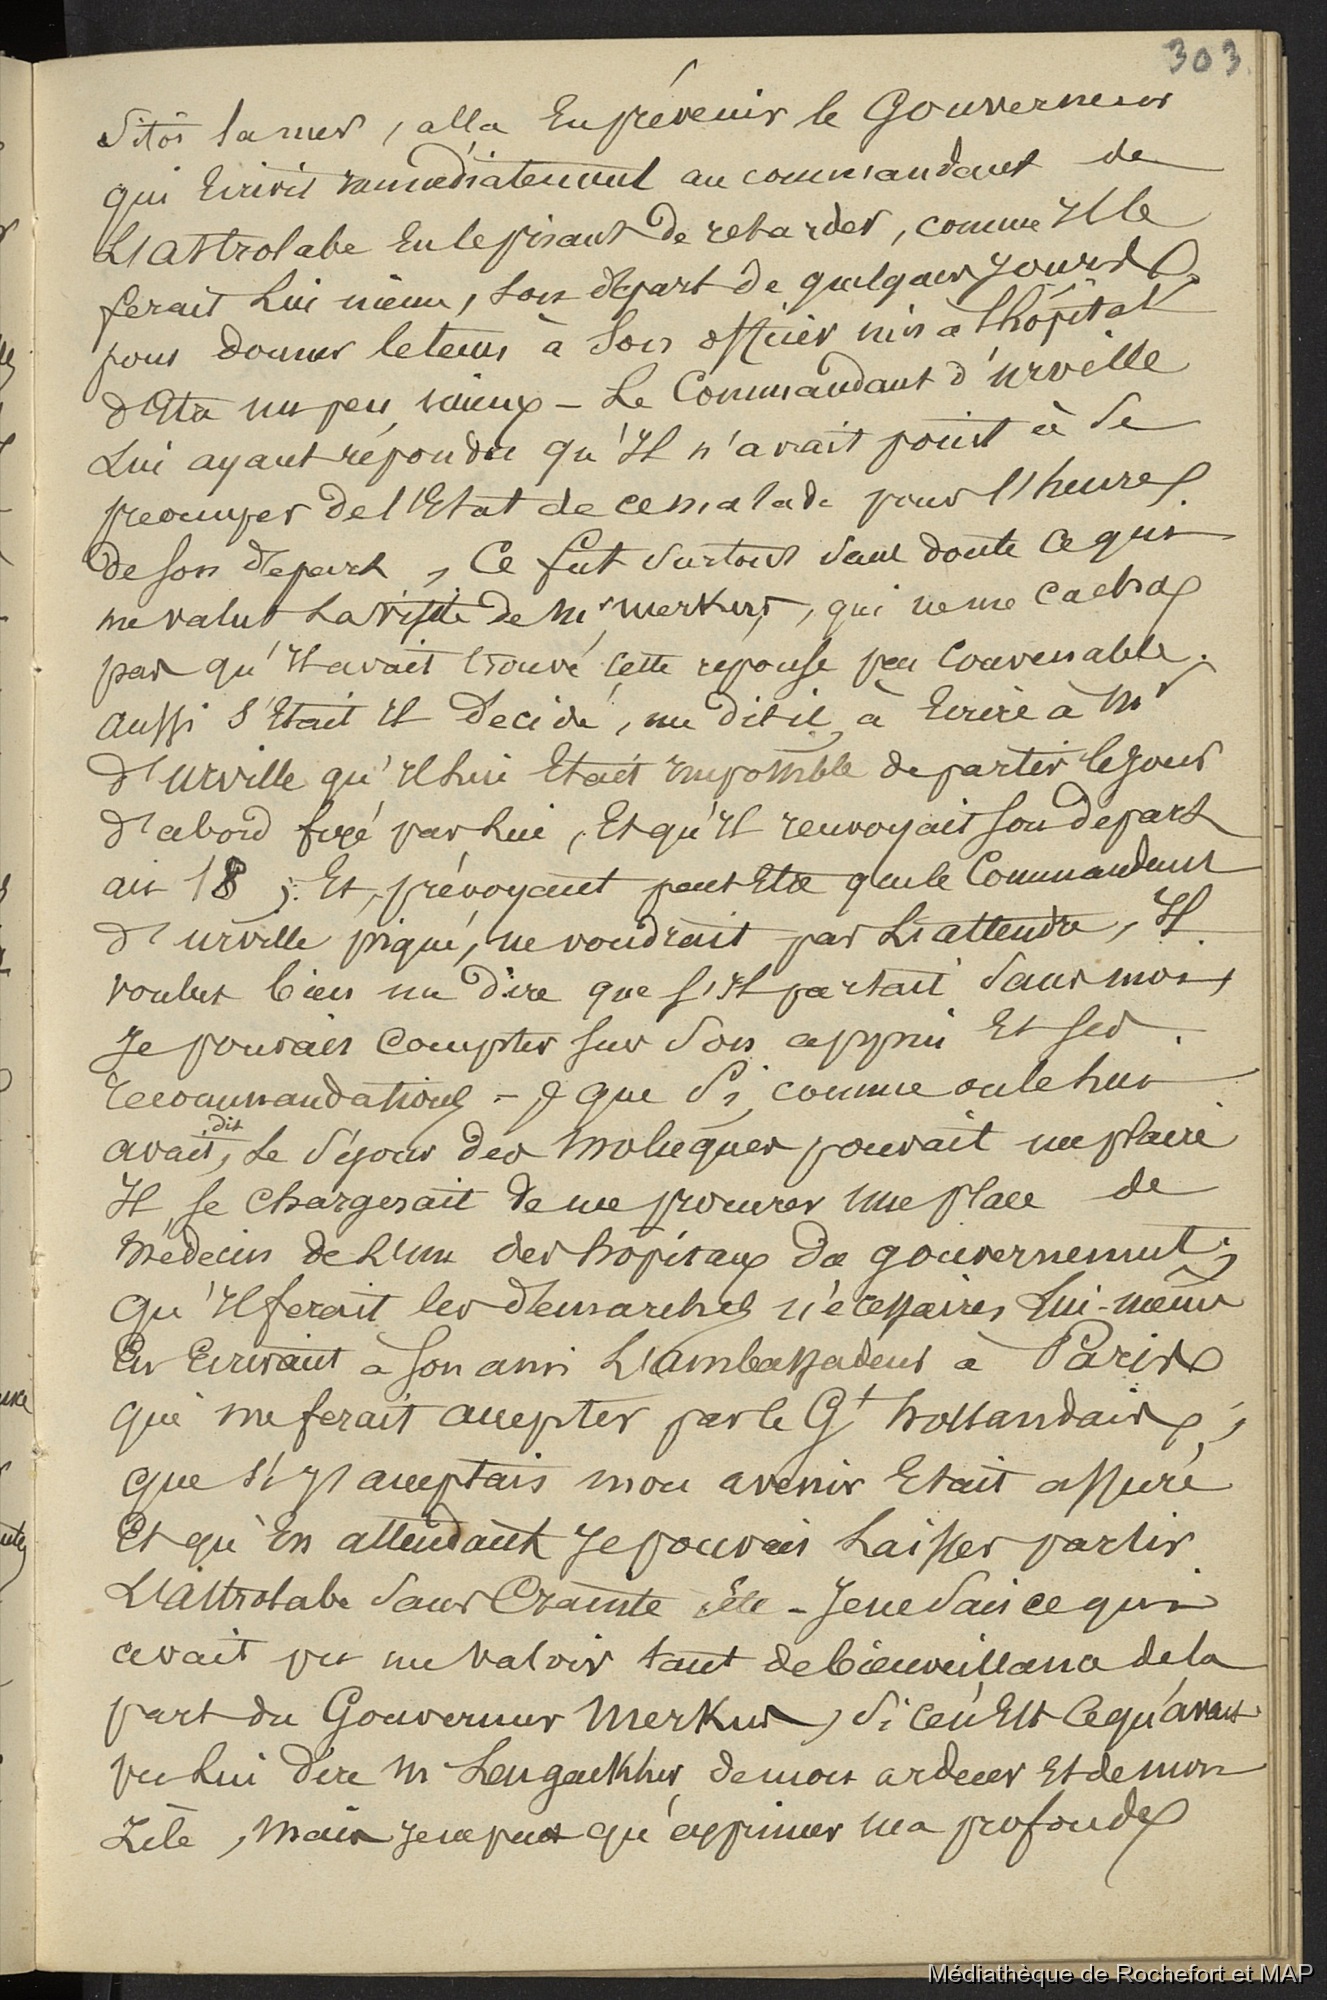 303
Sitôt la mer, alla En prévenir le Gouverneur
qui Ecrivit immédiatement au commandant de
L'Astrolabe En le priant de retarder, comme Il le
ferait Lui même, son départ de quelques Jours
pour donner le tems à Son officier mis à l'hôpital
d'Etre un peu mieux – Le Commandant d'Urville
Lui ayant répondu qu'Il n'avait point à Se
préoccuper de l'Etat de ce malade pour l'heure
de son départ, Ce fut Surtout Sans doute ce qui
me valut La visite de Mr Merkus, qui ne me cacha
pas qu'Il avait trouvé cette reponse peu Convenable.
aussi S'Etait Il décidé, me dit il, à Ecrire à Mr
d'Urville qu'Il Lui Etait Impossible de partir le Jour
d'abord fixé par Lui, Et qu'Il renvoyait son départ
au 18 ; Et, prévoyant peut Etre que le Commandant
d'Urville piqué, ne voudrait pas L'attendre, Il
voulut bien me dire que S'Il partait Sans moi,
Je pouvais compter sur Son appui Et ses
recommandations – Et que Si, comme on le Lui
avait dit, Le Séjour des Moluques pouvait me plaire
Il se chargerait de me procurer Une place de
Médecin de L'un des hôpitaux du gouvernement,
qu'Il ferait les démarches nécessaires Lui-même
En Ecrivant à Son ami L'ambassadeur à Paris
qui me ferait accepter par le Gt hollandais,
que Si J'acceptais mon avenir Etait assuré
Et qu'En attendant Je pouvais Laisser partir
L'Astrolabe Sans Crainte Etc – Je ne Sais ce qui
avait pu me valoir tant de bienveillance de la
part du Gouverneur Merkus, Si ce n'Est ce qu'avait
pu Lui dire M Lengackher, de mon ardeur Et de mon
Zèle, Mais Je ne puis qu'exprimer ma profonde
Médiathèque de Rochefort et MAP